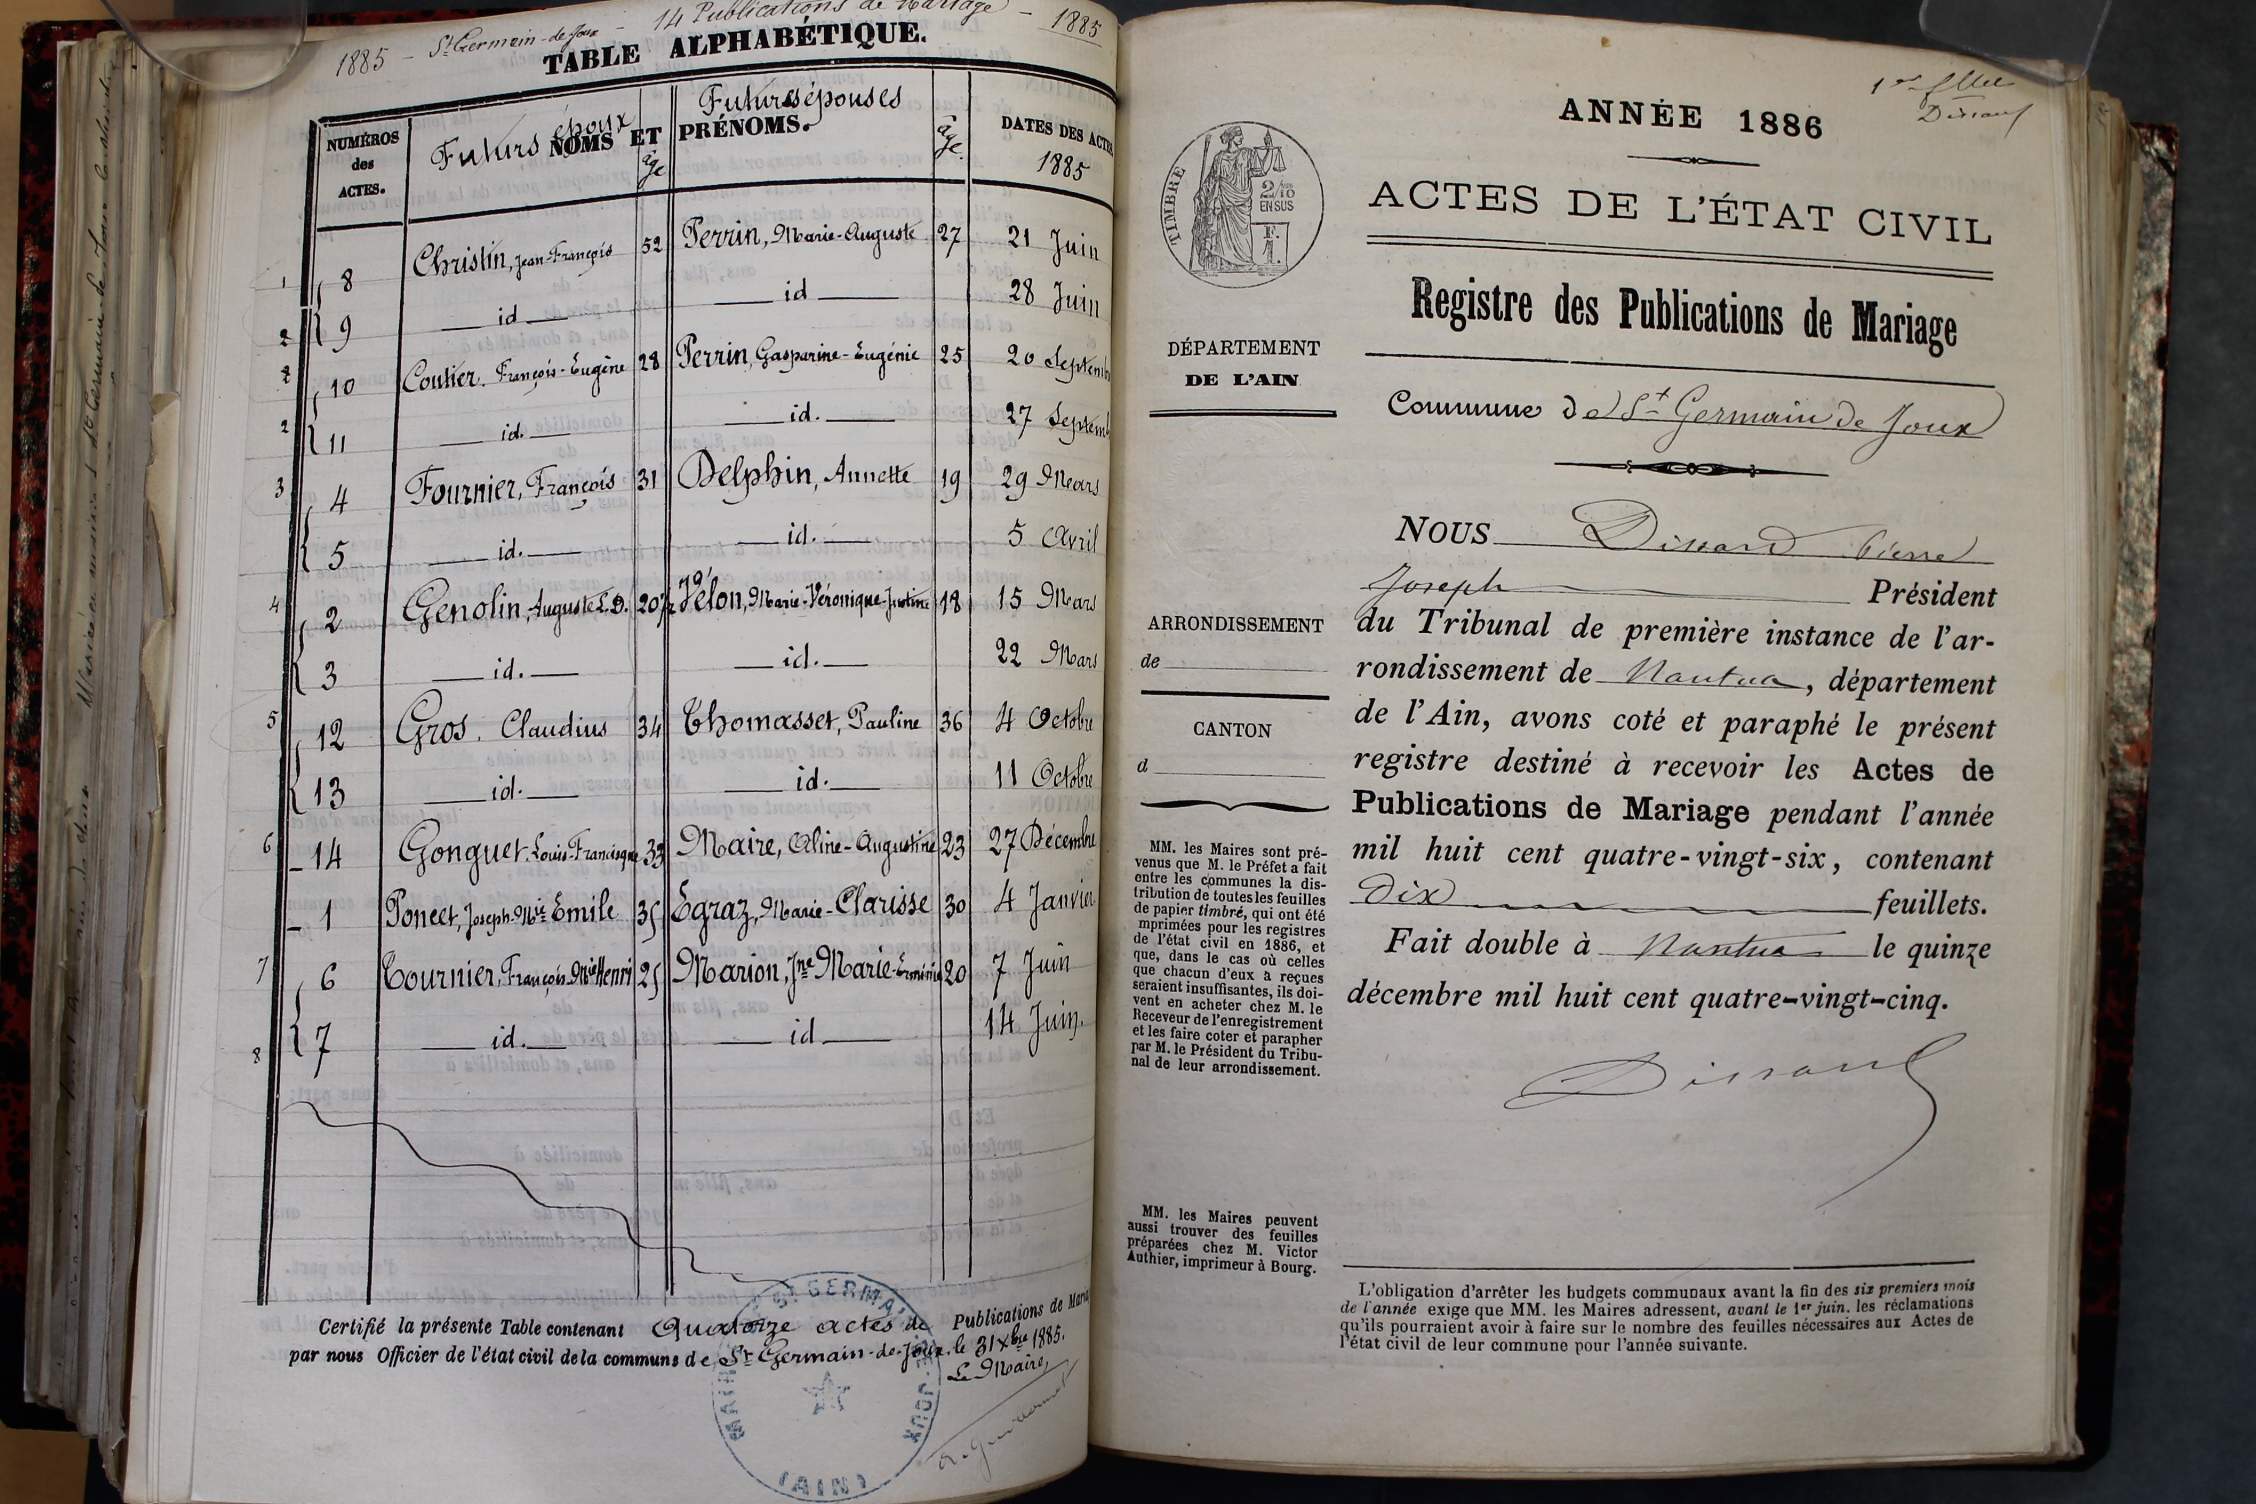 1885 - St Germain-de-Joux - 14 Publications de Mariage - 1885
TABLE ALPHABÉTIQUE.
NUMÉROS des ACTES. Futurs époux NOMS ET PRÉNOMS. âge Futures épouses âge. DATES DES ACTES 1885
1 8 Christin, Jean-François 52 Perrin, Marie-Auguste 27 21 Juin
2 9 id id 28 Juin
2 10 Coutier. François-Eugène 28 Perrin, Gasparine-Eugénie 25 20 Septemb
2 11 id. id. 27 Septemb
3 4 Fournier, François 31 Delphin, Annette 19 29 Mars
5 id. id. 5 Avril
4 2 Genolin, Auguste L.D. 20 Vélon, Marie-Véronique-Justine 18 15 Mars
3 id. id. 22 Mars
5 12 Gros. Claudius 34 Thomasset, Pauline 36 4 Octobre
13 id. id. 11 Octobre
6 14 Gonguet, Louis-Francisque 33 Maire, Aline-Augustine 23 27 Décembre
1 Poncet, Joseph-Mie Emile 35 Egraz, Marie-Clarisse 30 4 Janvier
7 6 Tournier, François-Mie Henri 25 Marion, Jne Marie-Erminie 20 7 Juin
8 7 id. id 14 Juin.
Certifié la présente Table contenant Quatorze actes de Publications de Maria
par nous Officier de l'état civil de la commune de St Germain-de-Joux, le 31 Xbre 1885.
Le Maire,
MAIRIE DE ST GERMAIN-DE-JOUX
(AIN)
1er
Dissard
ANNÉE 1886
ACTES DE L'ÉTAT CIVIL
Registre des Publications de Mariage
Commune de St Germain de Joux
TIMBRE
2/10 EN SUS
DÉPARTEMENT
DE L'AIN
ARRONDISSEMENT
de
CANTON
d
MM. les Maires sont pré-
venus que M. le Préfet a fait
entre les communes la dis-
tribution de toutes les feuilles
de papier timbré, qui ont été
mprimées pour les registres
de l'état civil en 1886, et
que, dans le cas où celles
que chacun d'eux a reçues
seraient insuffisantes, ils doi-
vent en acheter chez M. le
Receveur de l'enregistrement
et les faire coter et parapher
par M. le Président du Tribu-
nal de leur arrondissement.
MM. les Maires peuvent
aussi trouver des feuilles
préparées chez M. Victor
Authier, imprimeur à Bourg.
NOUS Dissard Pierre
Joseph Président
du Tribunal de première instance de l'ar-
rondissement de Nantua, département
de l'Ain, avons coté et paraphé le présent
registre destiné à recevoir les Actes de
Publications de Mariage pendant l'année
mil huit cent quatre-vingt-six, contenant
Dix feuillets.
Fait double à Nantua le quinze
décembre mil huit cent quatre-vingt-cinq.
Dissard
L'obligation d'arrêter les budgets communaux avant la fin des six premiers mois
de l'année exige que MM. les Maires adressent, avant le 1er juin. les réclamations
qu'ils pourraient avoir à faire sur le nombre des feuilles nécessaires aux Actes de
l'état civil de leur commune pour l'année suivante.